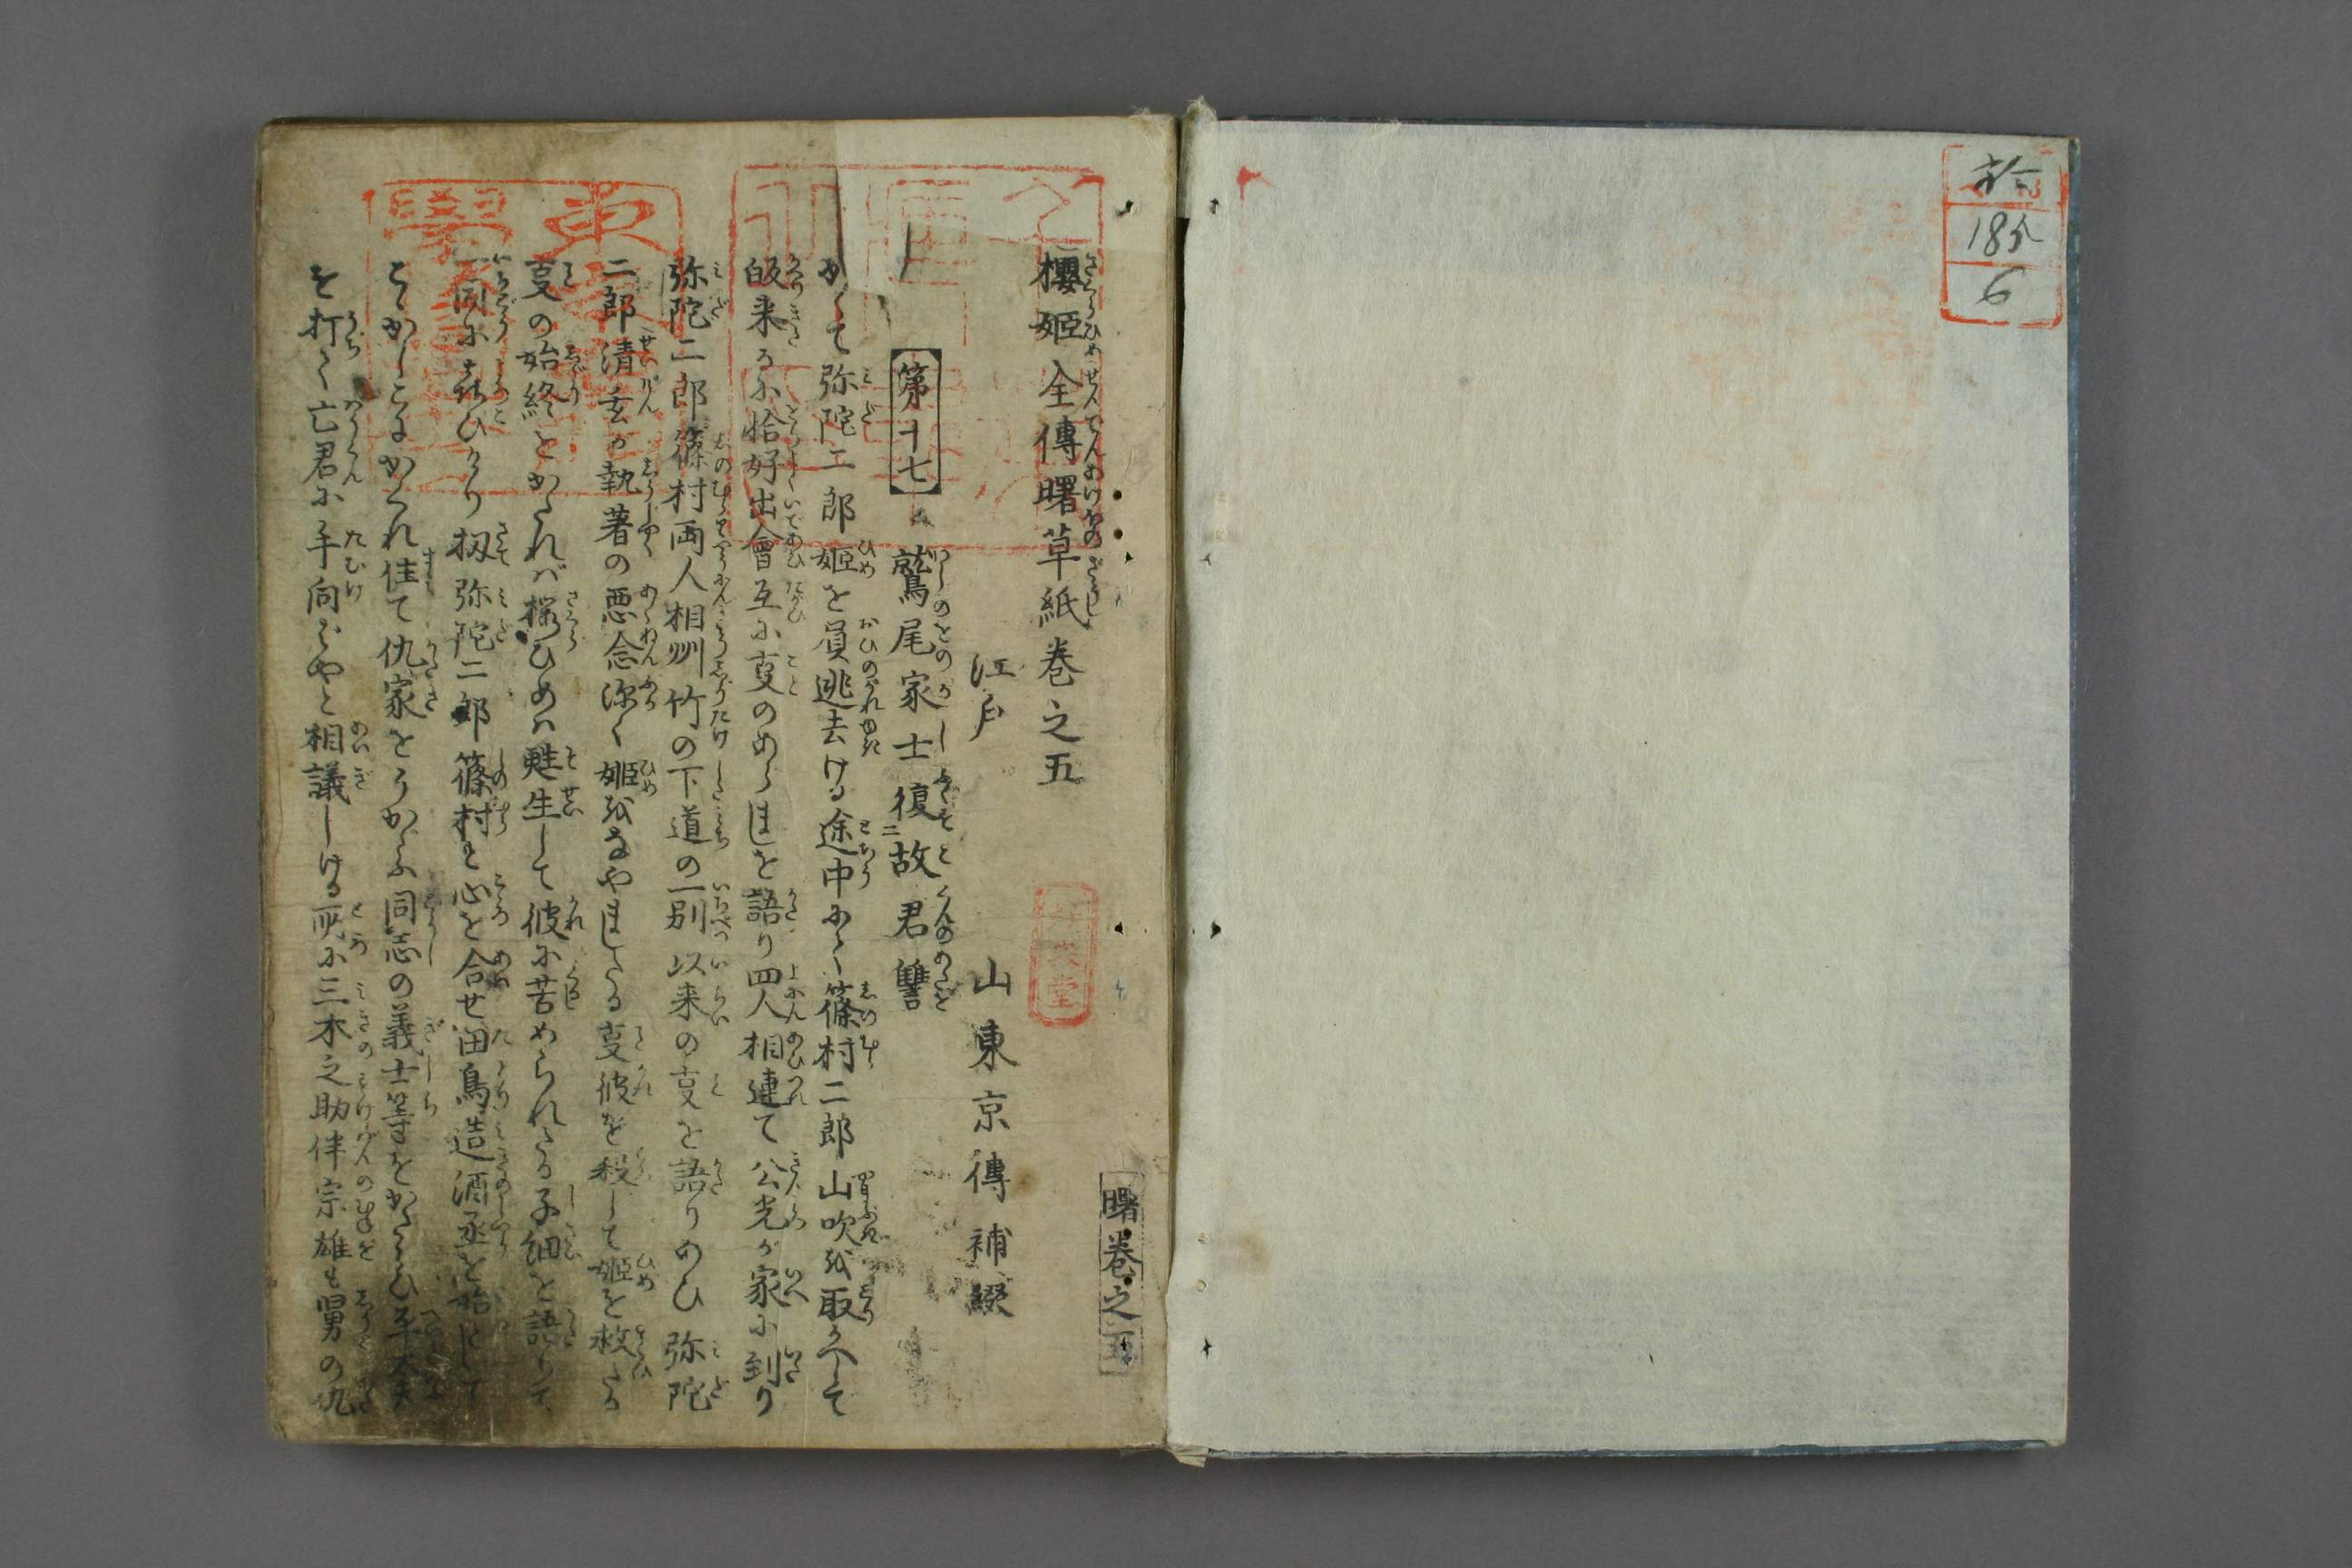 櫻姫全傳曙草紙巻之五
江戸　山東京傳補綴
第十七　鷲尾家士復二故君讐
かくて弥陀二郎姫を負逃去ける途中にて篠村二郎山吹を取かへして
皈来るに恰好出會互に叓のあらましを語り四人相連て公光が家に到り
弥陀二郎篠村両人相州竹の下道の一別以来の叓を語りあひ弥陀
二郎清玄が執著の悪念深く姫をなやましたる叓彼を殺して姫を救たる
叓の始終をかたれば桜ひめは甦生して彼に苦められたる子細を語りて
一同に歎ひけり扨弥陀二郎篠村と心を合せ田鳥造酒丞を始として
こゝかしこにかくれ住て仇家をうかゞふ同志の義士等をかたらひ平太夫
を打て亡君に手向ばやと相議しける所に三木之助伴宗雄も舅の仇
曙巻之五
185
6